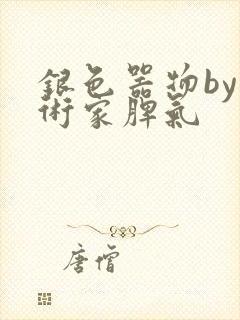 銀色器物by
術家脾氣
唐僧